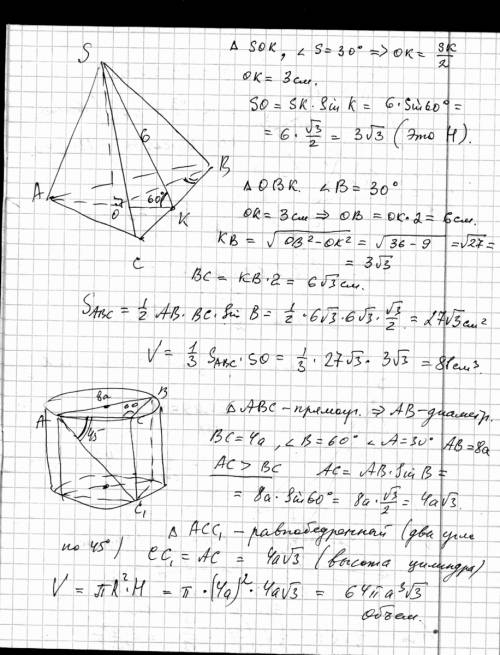 S
6
A
B
O
60°
K
C
△ SOK, ∠S=30° => OK = SK/2
OK = 3 см.
SO = SK · Sin K = 6 · Sin 60° =
= 6 · √3/2 = 3√3 (Это H).
△ OBK. ∠B = 30°
OK = 3 см => OB = OK · 2 = 6 см.
KB = √(OB² - OK²) = √(36 - 9) = √27 =
= 3√3
BC = KB · 2 = 6√3 см.
S_ABC = 1/2 AB · BC · Sin B = 1/2 · 6√3 · 6√3 · √3/2 = 27√3 см²
V = 1/3 S_ABC · SO = 1/3 · 27√3 · 3√3 = 81 см³
8a
B
A
60
C
45
C₁
△ ABC - прямоуг. => AB - диаметр.
BC = 4a, ∠B = 60° ∠A = 30° AB = 8a
AC > BC AC = AB · Sin B =
= 8a · Sin 60° = 8a · √3/2 = 4a√3
△ ACC₁ - равнобедренный (два угла
по 45°) CC₁ = AC = 4a√3 (высота цилиндра)
V = πR² · H = π · (4a)² · 4a√3 = 64πa³√3
объем.